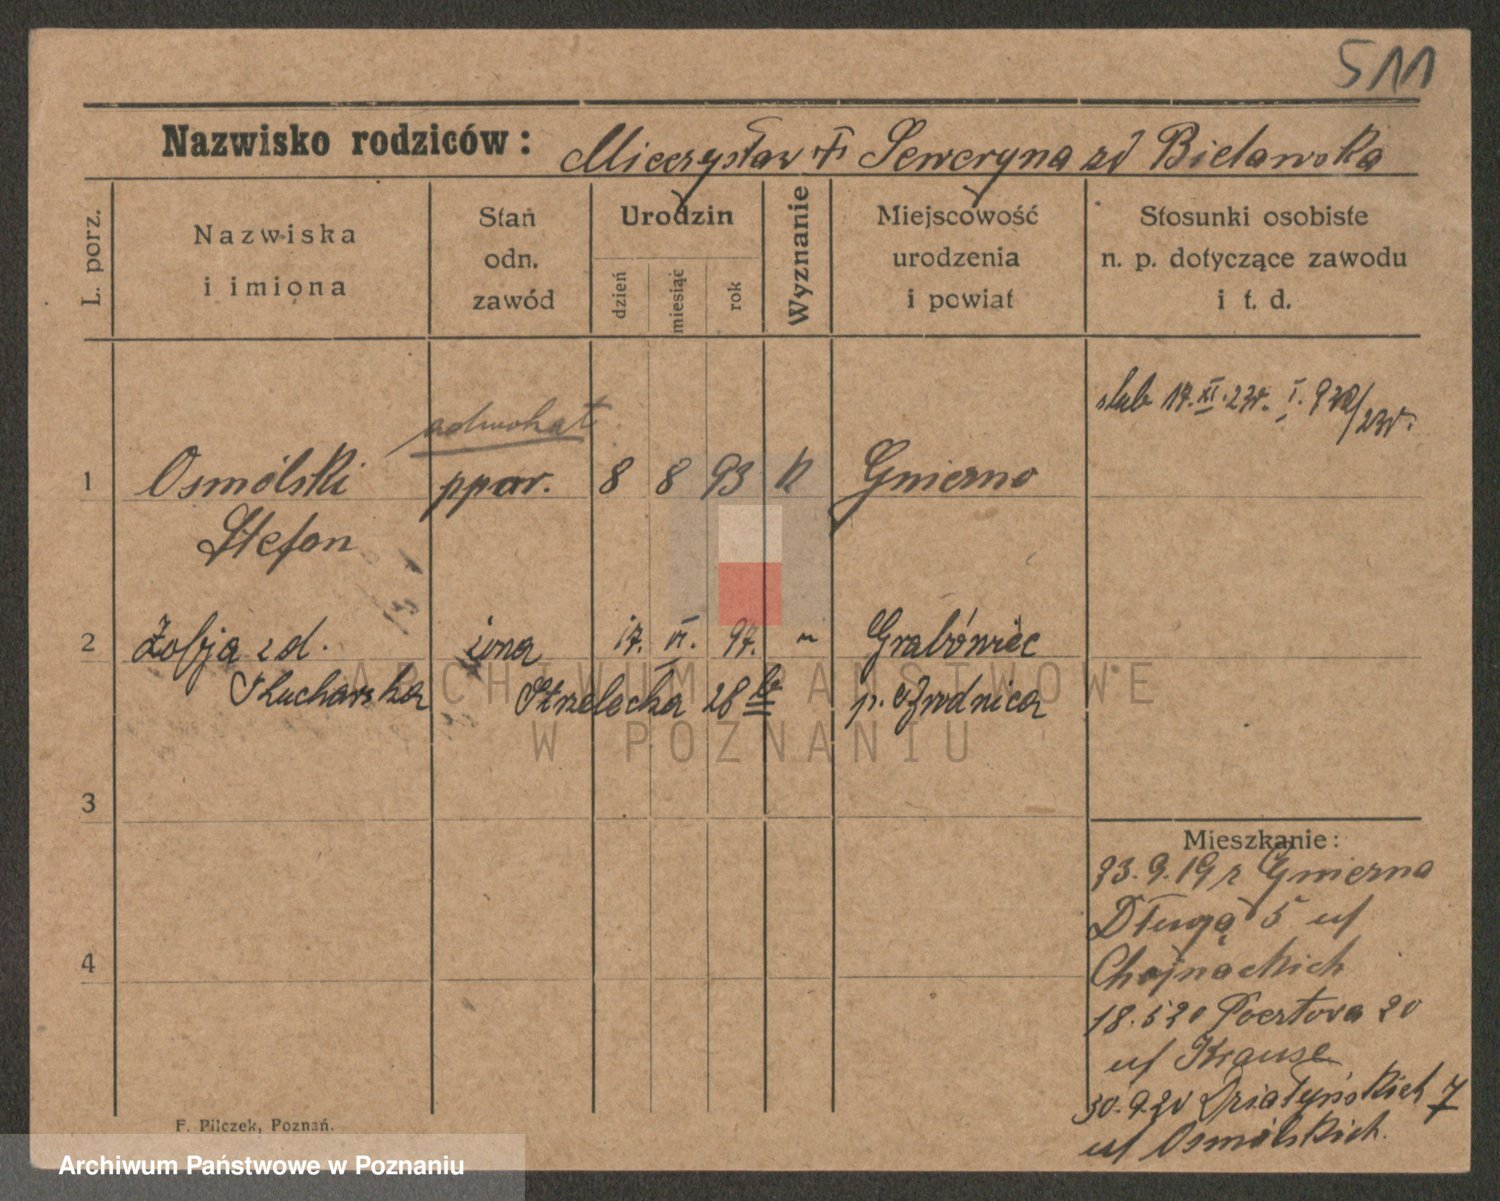 511
Nazwisko rodziców: Mieczysław + Seweryna zd Bielawska
L. porz.
Nazwiska i imiona
Stan odn. zawód
Urodzin
dzień
miesiąc
rok
Wyznanie
Miejscowość urodzenia i powiat
Stosunki osobiste n. p. dotyczące zawodu i t. d.
ślub 17. XI. 23r. I.
adwokat
1 Osmólski ppor. 8 8 93 K Gniezno
Stefan
2 Zofja zd. żona 17. VI. 97. ~ Grabówiec
Kucharska Strzelecka 28
3
Mieszkanie:
23.9.19 r Gniezna
Długa 5 u/
4
Chojnackich
18.5 20 Pocztova 20
u/ Krause
30.9.20 Działyńskich 7
u/ Osmólskich.
F. Pilczek, Poznań.
ARCHIWUM PAŃSTWOWE
W POZNANIU
Archiwum Państwowe w Poznaniu